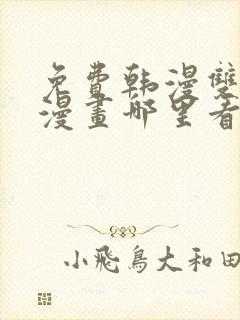 免费韩漫雙
漫畫哪里看
小飛鳥大和田